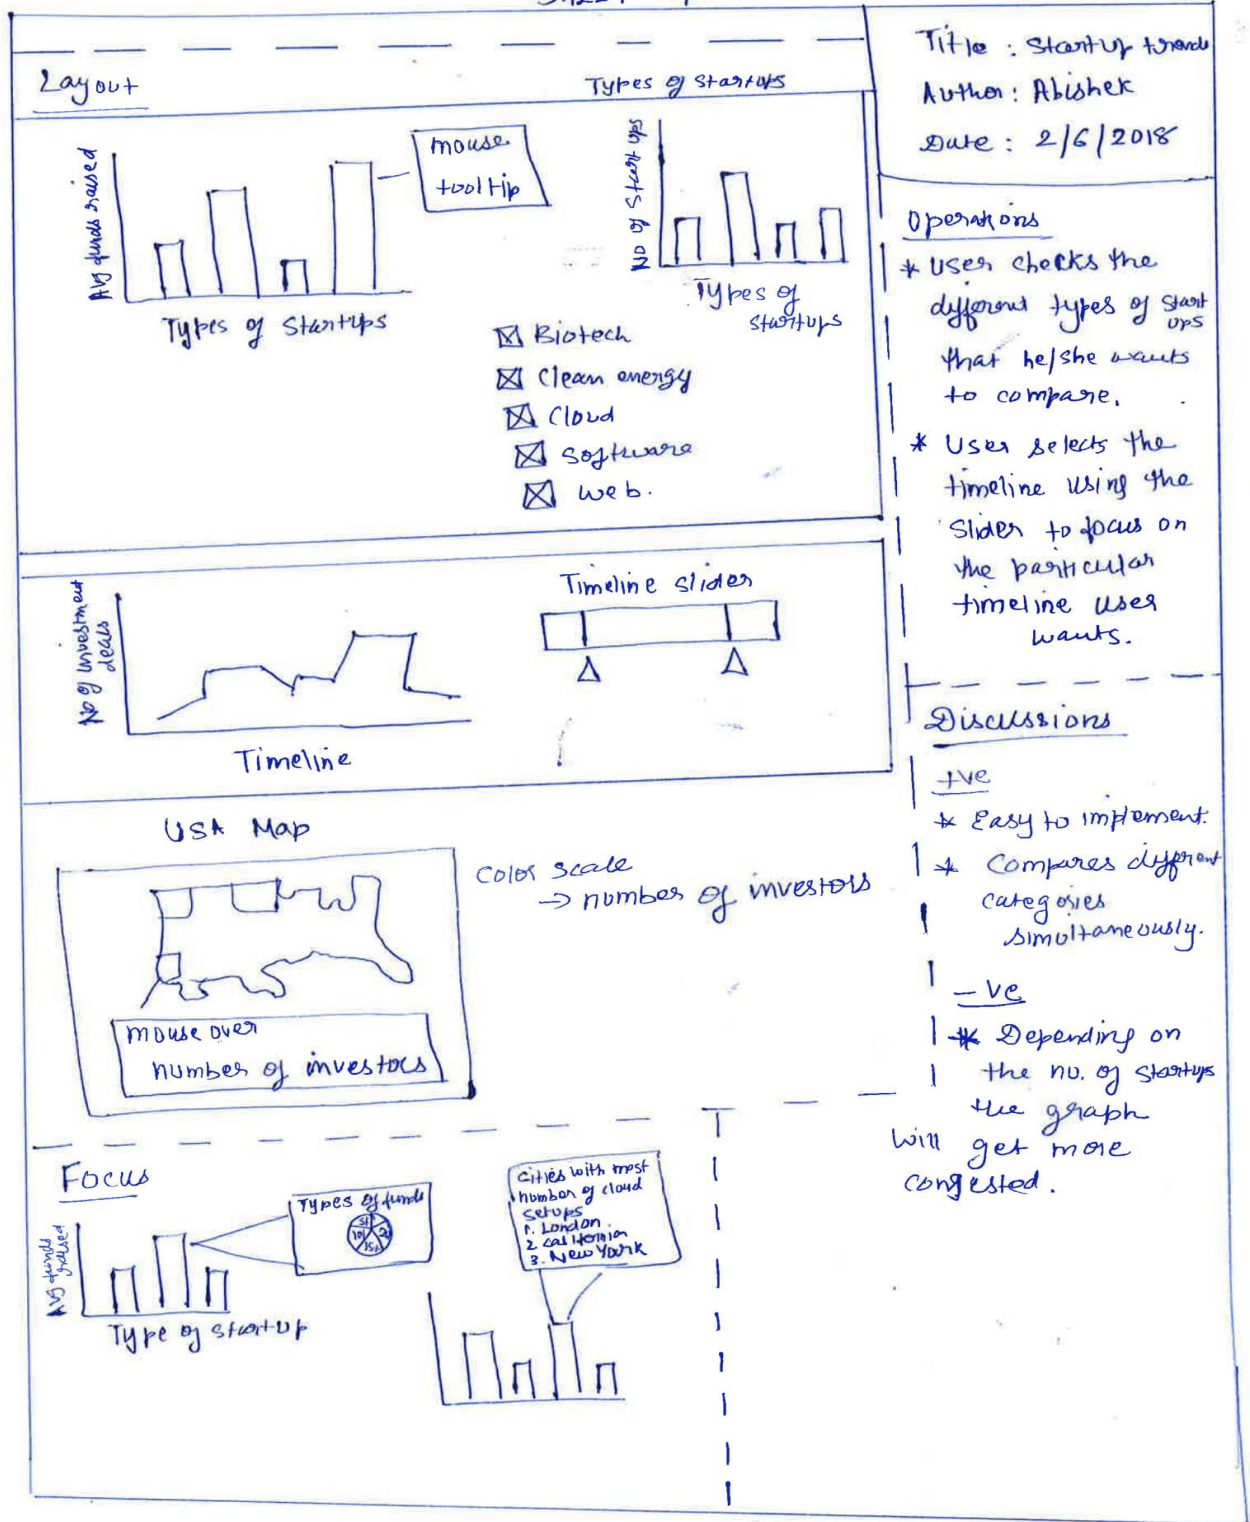 Title : Startup trends
Author : Abishek
Date : 2/6/2018
Layout
Types of startups
Avg funds raised
mouse
tooltip
Types of Startups
No of Start ups
Types of
startups
Biotech
Clean energy
Cloud
Software
Web.
No of investment
deals
Timeline
Timeline slider
USA Map
Color scale
→ number of investors
mouse over
number of investors
Focus
Avg funds
raised
Type of startup
Types of funds
Cities with most
number of cloud
setups
1. London
2 california
3. New York
Operations
* User checks the
different types of start
ups
that he/she wants
to compare.
* User selects the
timeline using the
slider to focus on
the particular
timeline user
wants.
Discussions
+ve
* Easy to implement.
* Compares different
categories
simultaneously.
- ve
* Depending on
the no. of startups
the graph
will get more
congested.